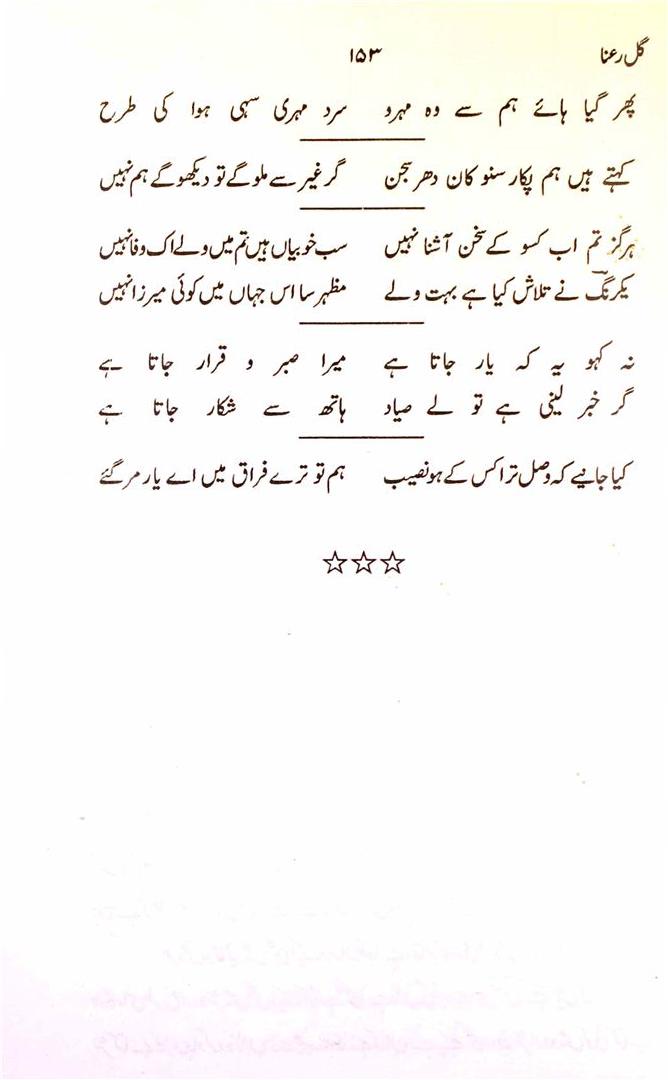 گل رعنا ۱۵۳
پھر گیا ہائے ہم سے وہ مہرو سرد مہری سہی ہوا کی طرح
کہتے ہیں ہم پکار سنو کان دھر سجن گر غیر سے ملو گے تو دیکھو گے ہم نہیں
ہرگز تم اب کسو کے سخن آشنا نہیں سب خوبیاں ہیں تم میں ولے اک وفا نہیں
یکرنگؔ نے تلاش کیا ہے بہت ولے مظہر سا اس جہاں میں کوئی میرزا نہیں
نہ کہو یہ کہ یار جاتا ہے میرا صبر و قرار جاتا ہے
گر خبر لینی ہے تو لے صیاد ہاتھ سے شکار جاتا ہے
کیا جانیے کہ وصل ترا کس کے ہو نصیب ہم تو ترے فراق میں اے یار مر گئے
☆☆☆